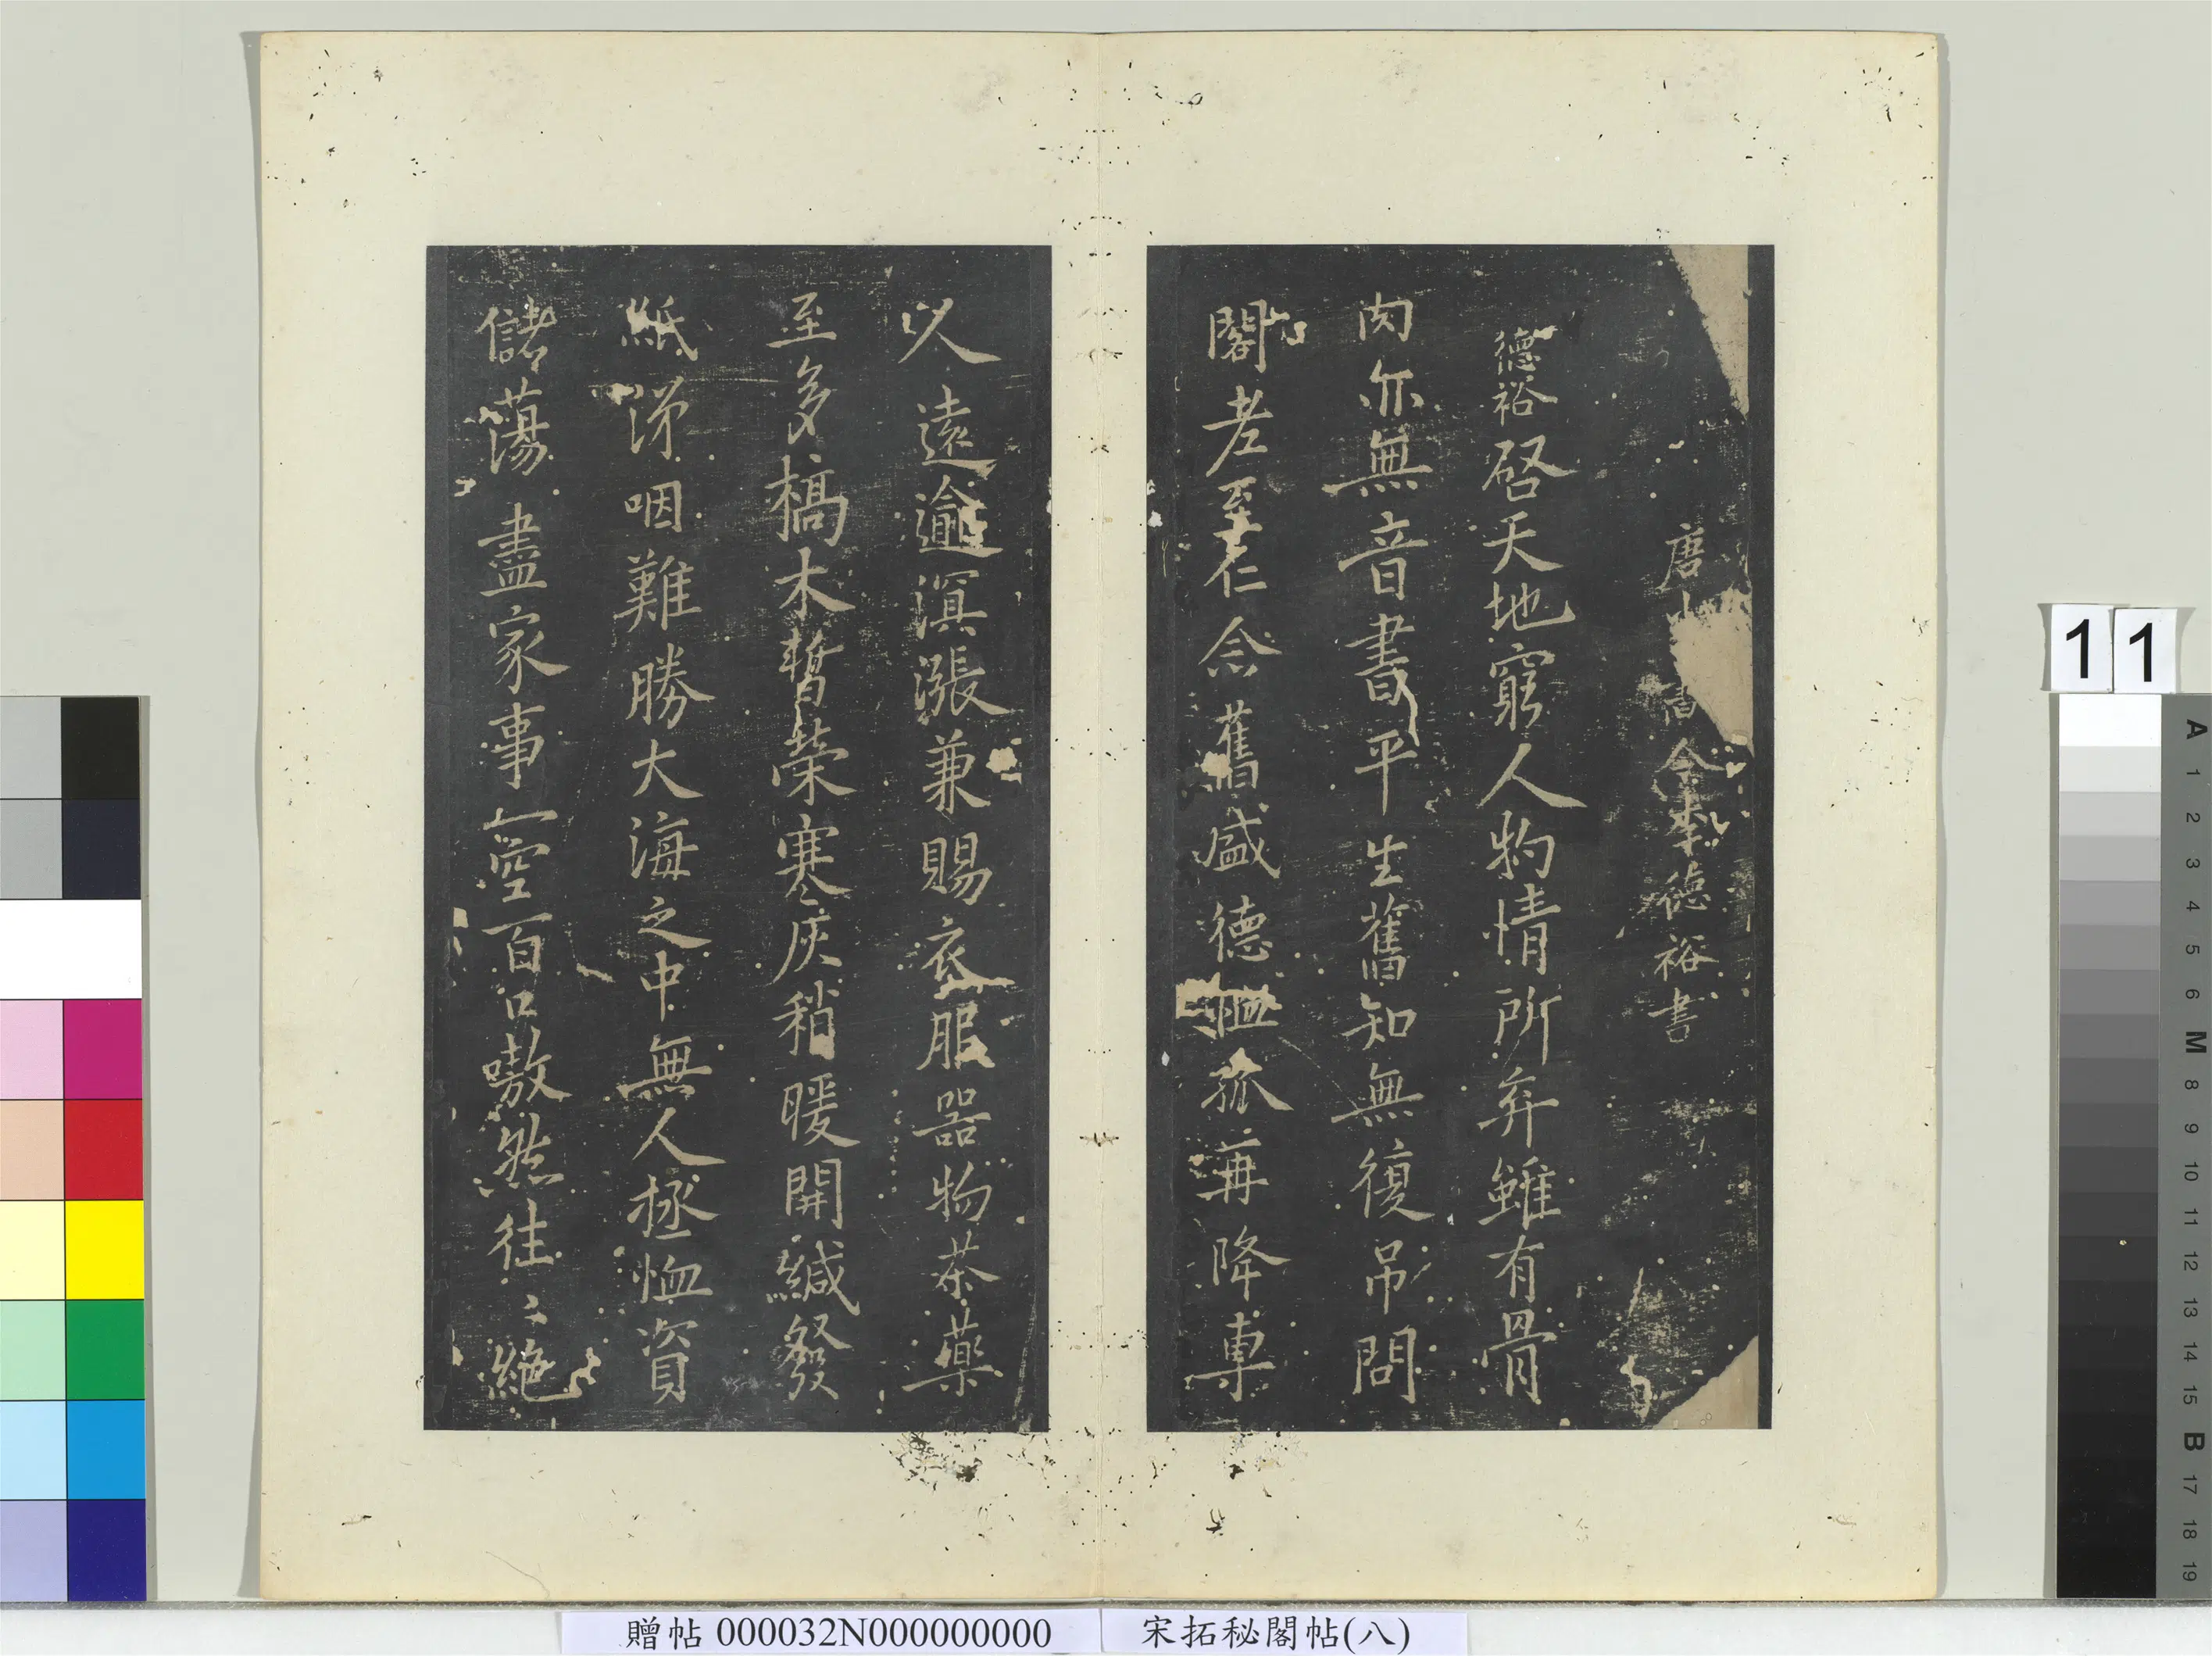 唐中書令李德裕書
德裕啓天地窮人物情所弃雖有骨
肉亦無音書平生舊知無復吊問
閣老至仁念舊盛德恤孤再降專
人遠逾溟漲兼賜衣服器物茶藥
至多槁木暫榮寒灰稍暖開緘發
紙涕咽難勝大海之中無人拯恤資
儲蕩盡家事一空百口嗷然往往絶
11
贈帖 000032N000000000
宋拓秘閣帖(八)
A 1 2 3 4 5 6 M 8 9 10 11 12 13 14 15 B 17 18 19